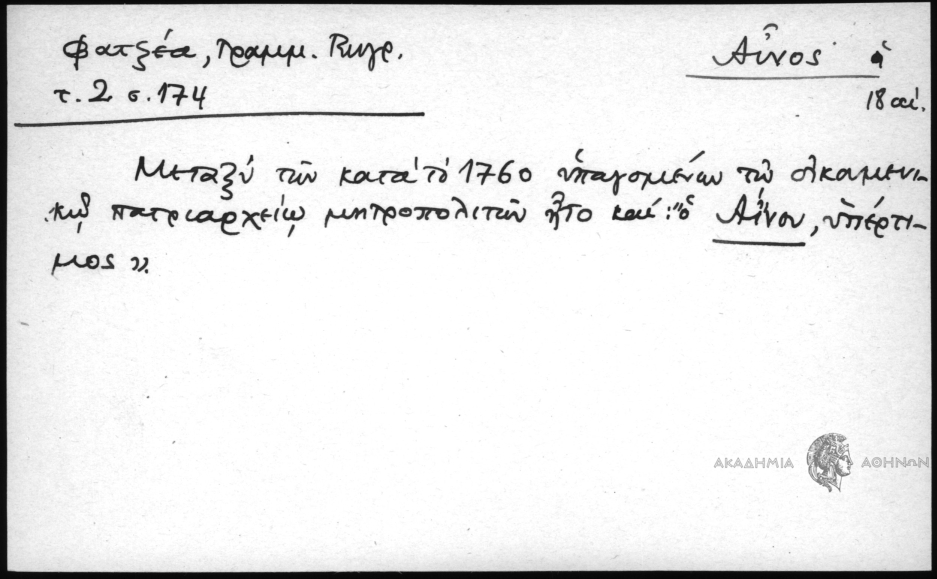 Φατζέα, Γραμμ. Κυγρ.
τ. 2 σ. 174
Αἶνος ἡ
18 αἰ.
Μεταξύ τῶν κατά τό 1760 ὑπαγομένων τῷ οἰκουμενι-
κῷ πατριαρχείῳ μητροπολιτῶν ἦτο καί: «ὁ Αἴνου, ὑπέρτι-
μος».
ΑΚΑΔΗΜΙΑ ΑΘΗΝΩΝ